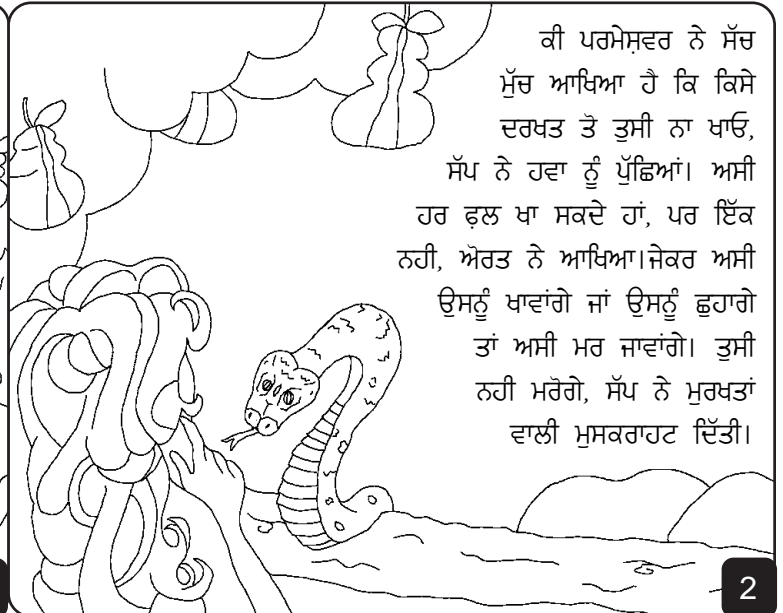 ਕੀ ਪਰਮੇਸ਼ਵਰ ਨੇ ਸੱਚ
ਮੁੱਚ ਆਖਿਆ ਹੈ ਕਿ ਕਿਸੇ
ਦਰਖਤ ਤੋ ਤੁਸੀ ਨਾ ਖਾਓ,
ਸੱਪ ਨੇ ਹਵਾ ਨੂੰ ਪੁੱਛਿਆਂ। ਅਸੀ
ਹਰ ਫ਼ਲ ਖਾ ਸਕਦੇ ਹਾਂ, ਪਰ ਇੱਕ
ਨਹੀ, ਅੋਰਤ ਨੇ ਆਖਿਆ।ਜੇਕਰ ਅਸੀ
ਉਸਨੂੰ ਖਾਵਾਂਗੇ ਜਾਂ ਉਸਨੂੰ ਛੁਹਾਗੇ
ਤਾਂ ਅਸੀ ਮਰ ਜਾਵਾਂਗੇ। ਤੁਸੀ
ਨਹੀ ਮਰੋਗੇ, ਸੱਪ ਨੇ ਮੁਰਖਤਾਂ
ਵਾਲੀ ਮੁਸਕਰਾਹਟ ਦਿੱਤੀ।
2